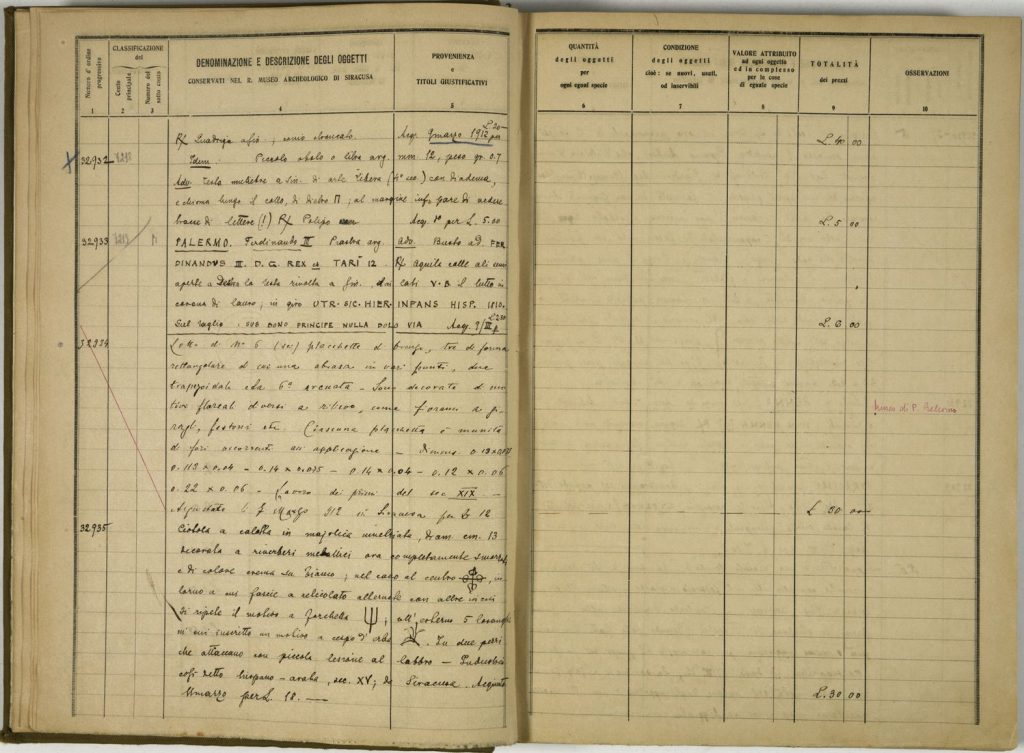 Numero d'ordine progressivo
CLASSIFICAZIONE del
Conto principale
Numero del sotto conto
DENOMINAZIONE E DESCRIZIONE DEGLI OGGETTI
CONSERVATI NEL R. MUSEO ARCHEOLOGICO DI SIRACUSA
PROVENIENZA
e
TITOLI GIUSTIFICATIVI
1 2 3 4 5
QUANTITÀ
degli oggetti
per
ogni egual specie
CONDIZIONE
degli oggetti
cioè: se nuovi, usati,
od inservibili
VALORE ATTRIBUITO
ad ogni oggetto
ed in complesso
per le cose
di eguale specie
TOTALITÀ
dei prezzi
OSSERVAZIONI
6 7 8 9 10
R/ Quadriga a sin; Acq. 9 marzo 1912 per L. 20 L. 40 00
32932 Idem. Piccolo obolo o litra arg. mm 12, peso gr. 0.7
Adv. Testa a sin. di arte libera (4° sec.) con diadema,
e chioma lungo il collo, di dietro Π; al margine infer. pare di vedere
tracce di lettere (!) R/ Polipo Acq. per L. 5.00 L. 5 00
32933 PALERMO. Ferdinando III Piastra arg. Adv. Busto a d. FER
DINANDVS III. D. G. REX TARI 12 R/ aquila colle ali semi
aperte a la testa rivolta a sin. lati V.B il tutto in
corona di lauro; in giro UTR. SIC. HIER. INFANS HISP. 1810.
Sul taglio: SUB BONO PRINCIPE NULLA DOLO VIA Acq. 9/III p. L. 6 00
32934 Lotto di N° 6 (sei) placchette di bronzo, tre di forma
rettangolare di cui una abrasa in vari punti, due
trapezoidale e la 6ª arcuata - Sono decorate di mo
tivi floreali diversi a rilievo, come
festoni etc. Ciascuna placchetta è munita
di fori occorrenti all'applicazione - Dimens. 0.13
0.113 x 0.04 - 0.14 x 0.075 - 0.14 x 0.04 - 0.12 x 0.06
0.22 x 0.06 - Lavoro dei primi del sec. XIX -
Acquistato il 7 Marzo 912 in Siracusa per L. 12 L. 30 00
32935 Ciotola a calotta in majolica, diam. cm. 13
decorata a riverberi metallici ora completamente
e di colore crema su bianco; nel cavo al centro, in
torno a cui fascie a reticolato alternate con altre in cui
si ripete il motivo a forchetta; all'esterno 5 losanghe
in cui inscritto un motivo a cespo d'erba. In due pezzi
che attaccano con piccola lesione al labbro - Industria
così detta hispano-araba, sec. XV; da Siracusa. Acquisto
marzo per L. 18. L. 30 00
Museo di P. Bellomo